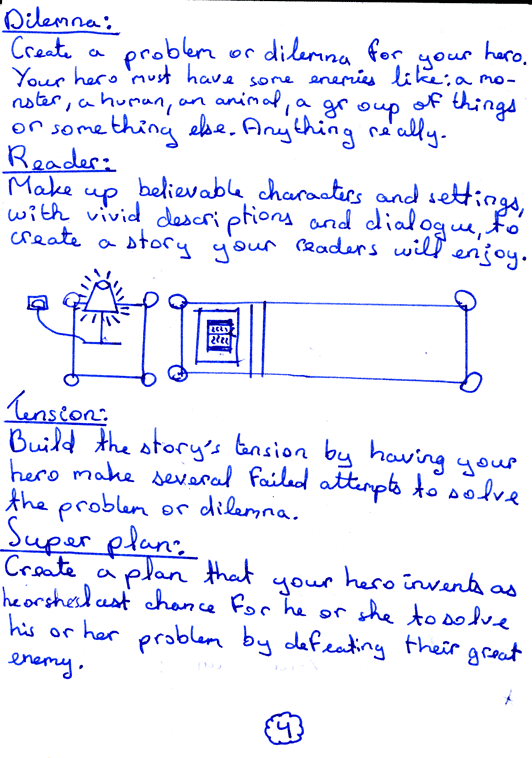 Dilemna:
Create a problem or dilemna for your hero.
Your hero must have some enemies like: a mo-
nster, a human, an animal, a group of things
or something else. Anything really.
Reader:
Make up believable characters and settings,
with vivid descriptions and dialogue, to
create a story your readers will enjoy.
Tension:
Build the story's tension by having your
hero make several failed attempts to solve
the problem or dilemna.
Super plan:
Create a plan that your hero invents as
heorsheslast chance for he or she to solve
his or her problem by defeating their great
enemy.
4